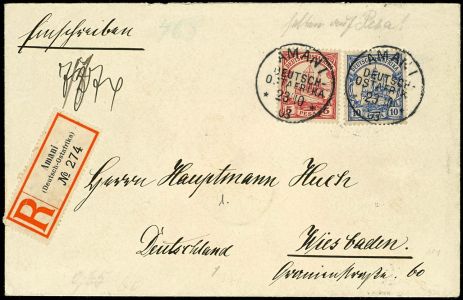 Einschreiben
AMANI
DEUTSCH-
OSTAFRIKA
* 23 10 *
03
AMANI
DEUTSCH-
OSTAFRIKA
03
R
Amani
(Deutsch-Ostafrika)
№ 274
Herrn Hauptmann Huch
Deutschland
Wiesbaden.
Oranienstraße. 60